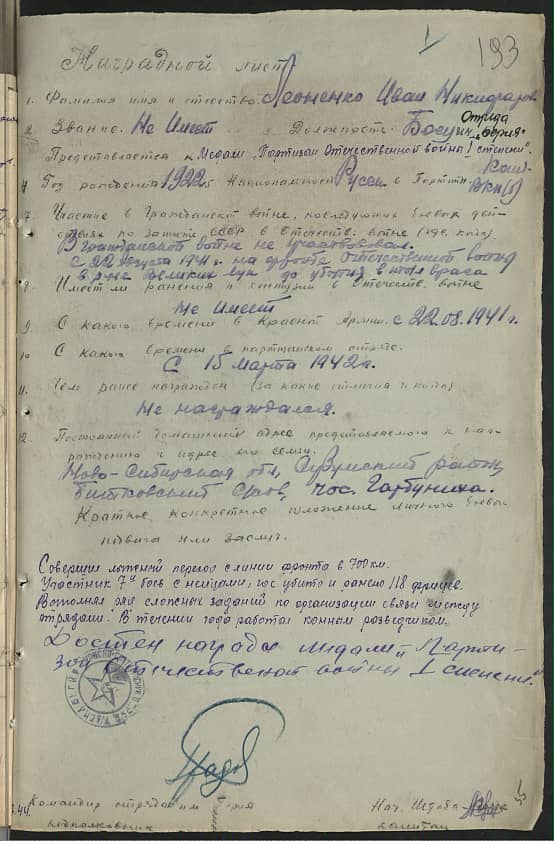 193
Наградной лист
1. Фамилия имя и отество Леоненко Иван Никифоров.
2. Звание. Не Имеет 3. Должность. Боец отряда
Представляется к Медали "Партизан Отечественной войны I степени".
4. Год рождения 1922 г. 5 Национальность Русск. 6 Партийн. Канд. ВКП(б)
7. Участие в Гражданской войне, последующих боевых дей-
ствиях по защите СССР в Отечеств. войне (где, когда)
В гражданской войне не участвовал.
с 22 августа 1941 г. на фронте отечественной войны
в р-не Великих лук до ухода в тыл врага
8 Имеет ли ранения и контузии в Отечеств. войне
Не Имеет
9. С какого времени в Красной Армии. с 22.08.1941 г.
10 С какого времени в партизанском отряде.
С 15 марта 1942 г.
11. Чем ранее награжден (за какие отличия и когда)
Не награждался.
12. Постоянный домашний адрес представляемого к наг-
раждению и адрес его семьи.
Ново-Сибирская обл, район,
пос. Гарбузиха.
Краткое, конкретное изложение личного боевого
подвига или заслуг.
Совершил лыжный переход с линии фронта в 700 км.
Участник 7и боев с немцами, где убито и ранено 118 фрицев.
Выполнял ряд сложных заданий по организации связи между
отрядами. В течении года работал конным разведчиком.
Достоен награды медали "Парти-
зан Отечественной войны I степени".
Командир отряда им
подполковник
Нач. Штаба
капитан